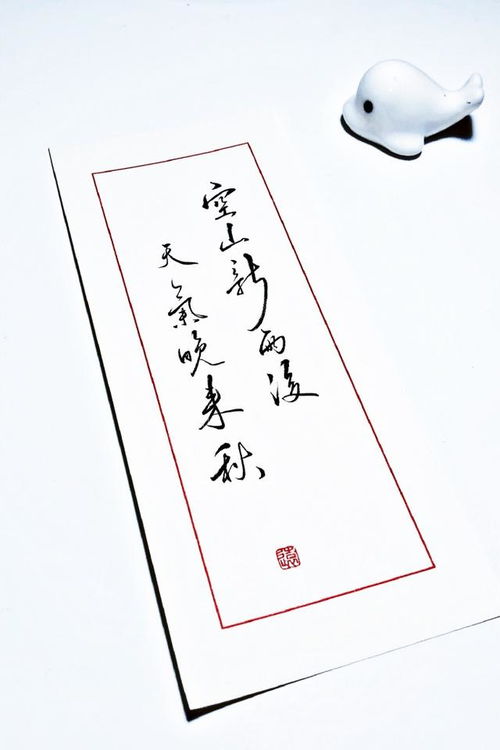 空山新雨後
天氣晚來秋